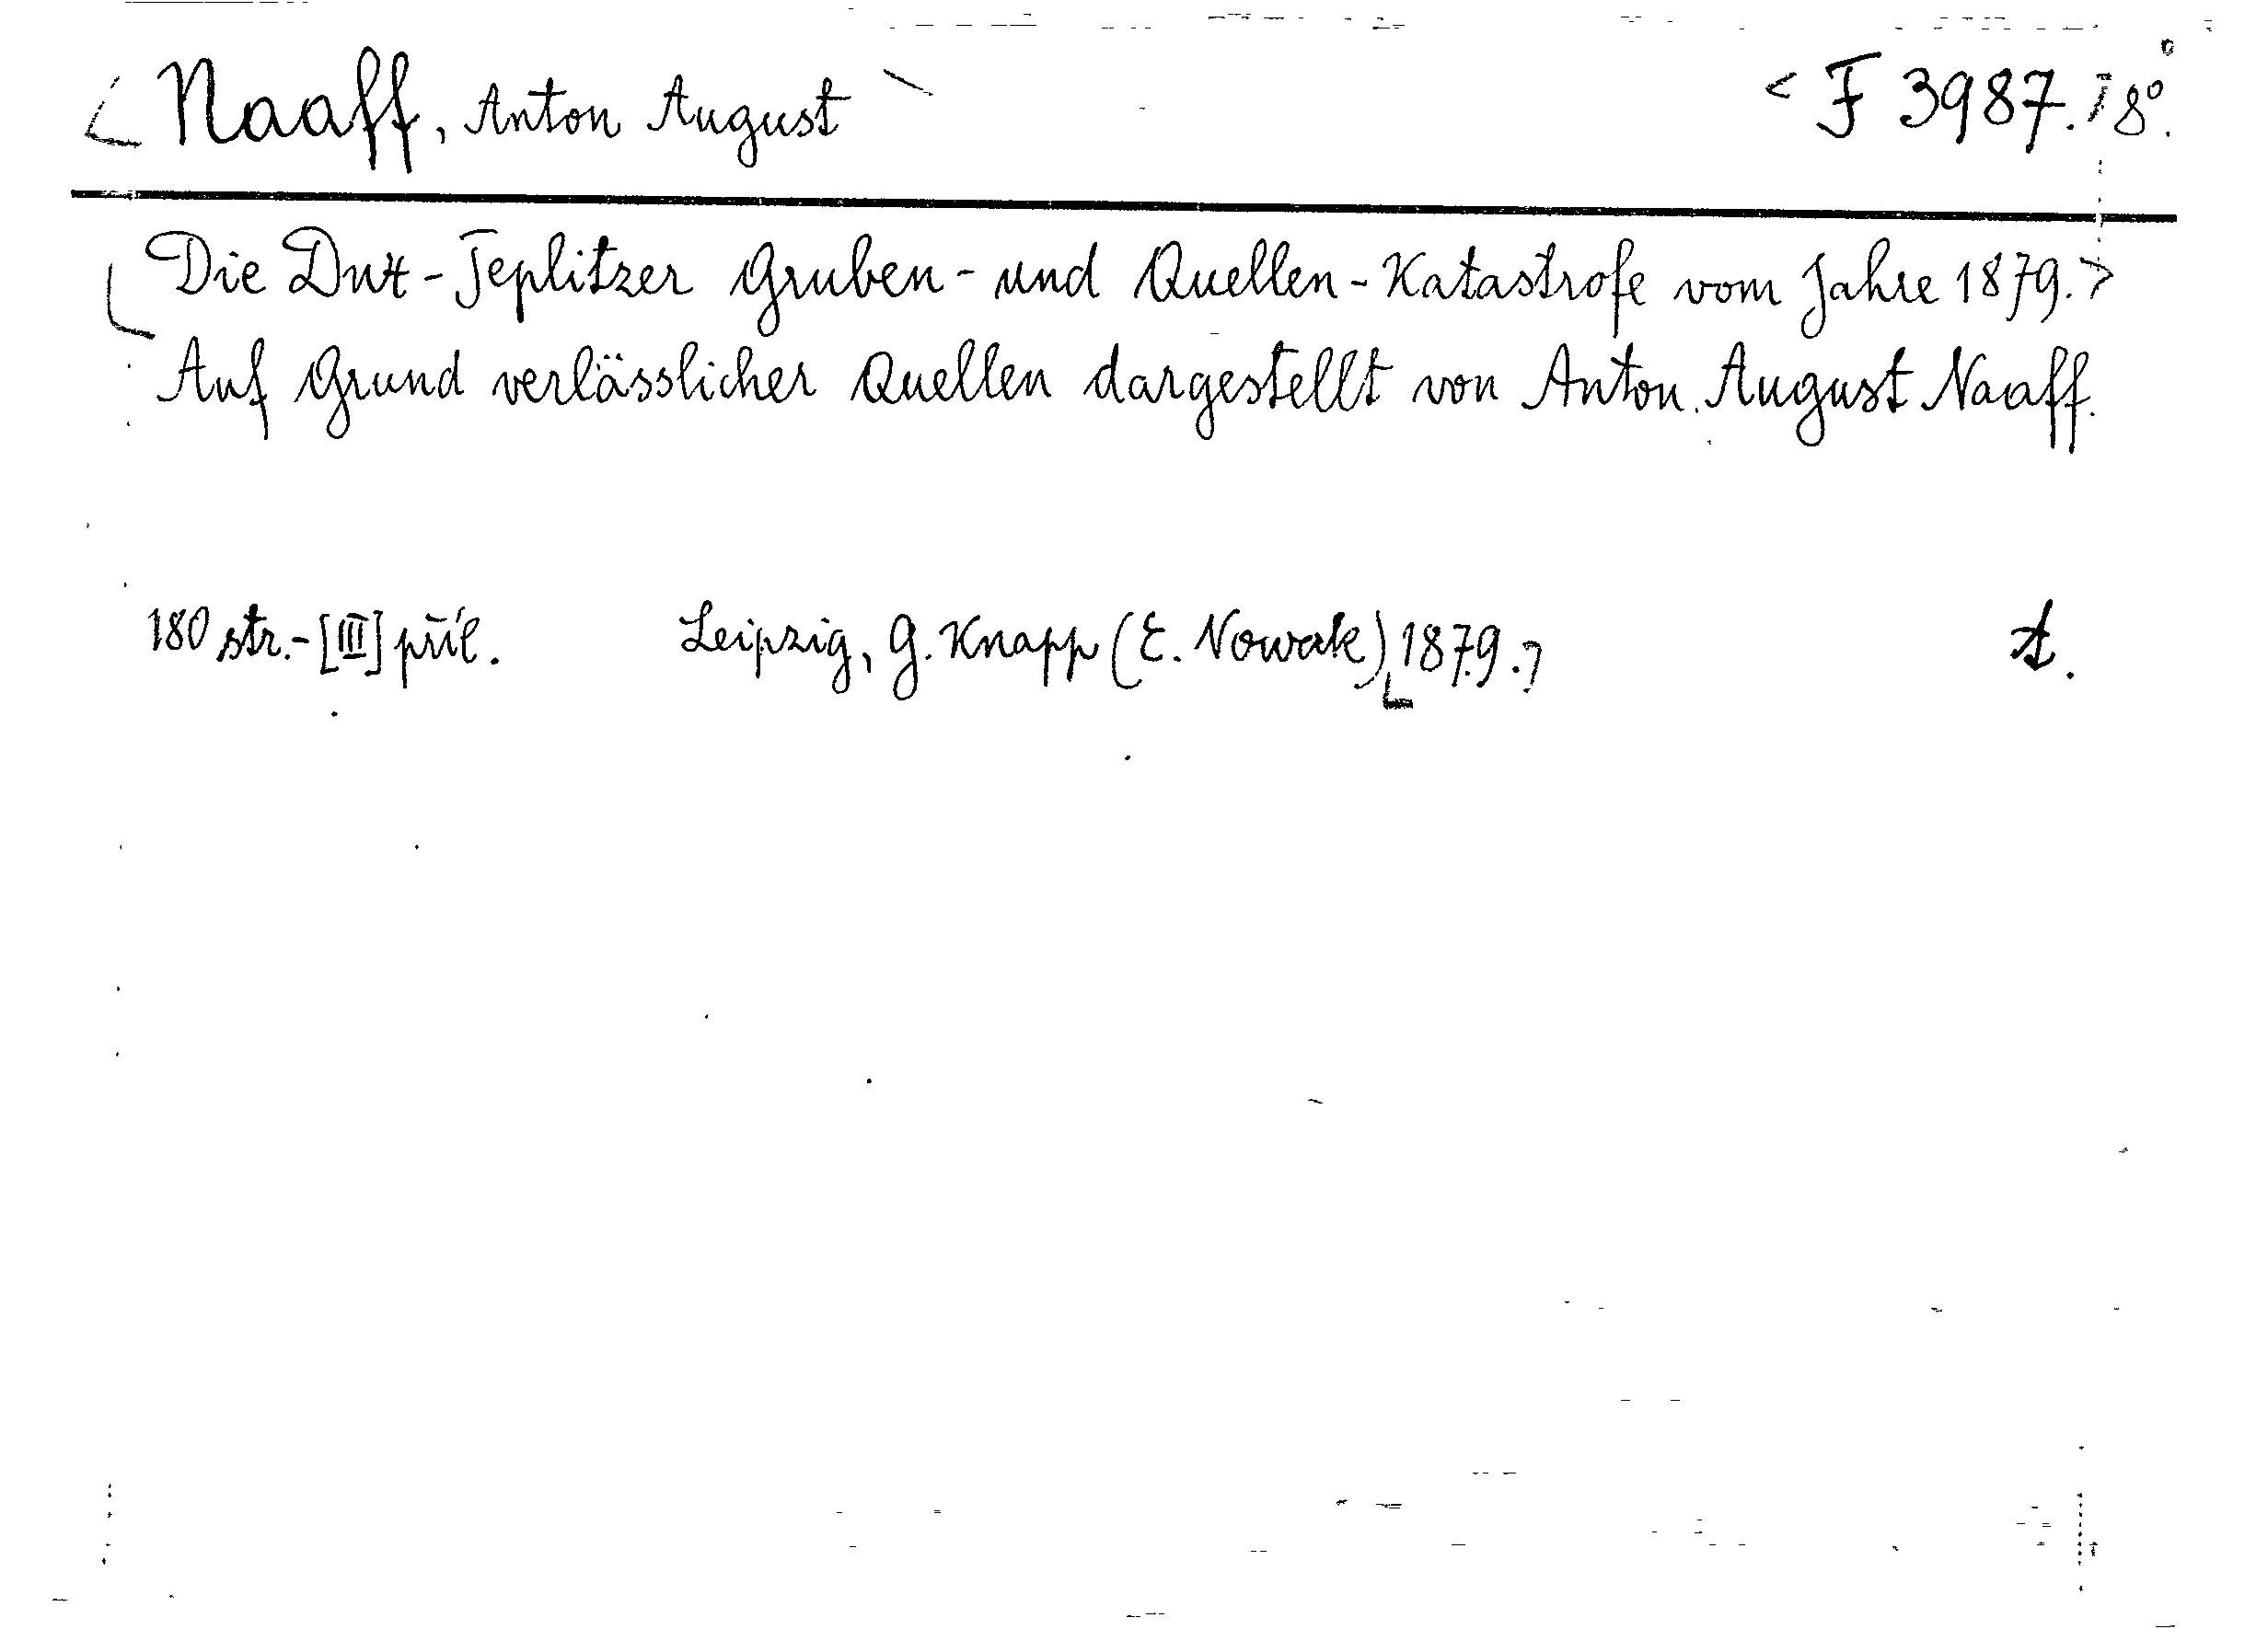 Naaff, Anton August F 3987. 8°.
Die Dux-Teplitzer Gruben- und Quellen-Katastrofe vom Jahre 1879.
Auf Grund verlässlicher Quellen dargestellt von Anton August Naaff.
180 str.-[III] příl. Leipzig, G. Knapp (E. Nowak) 1879. A.